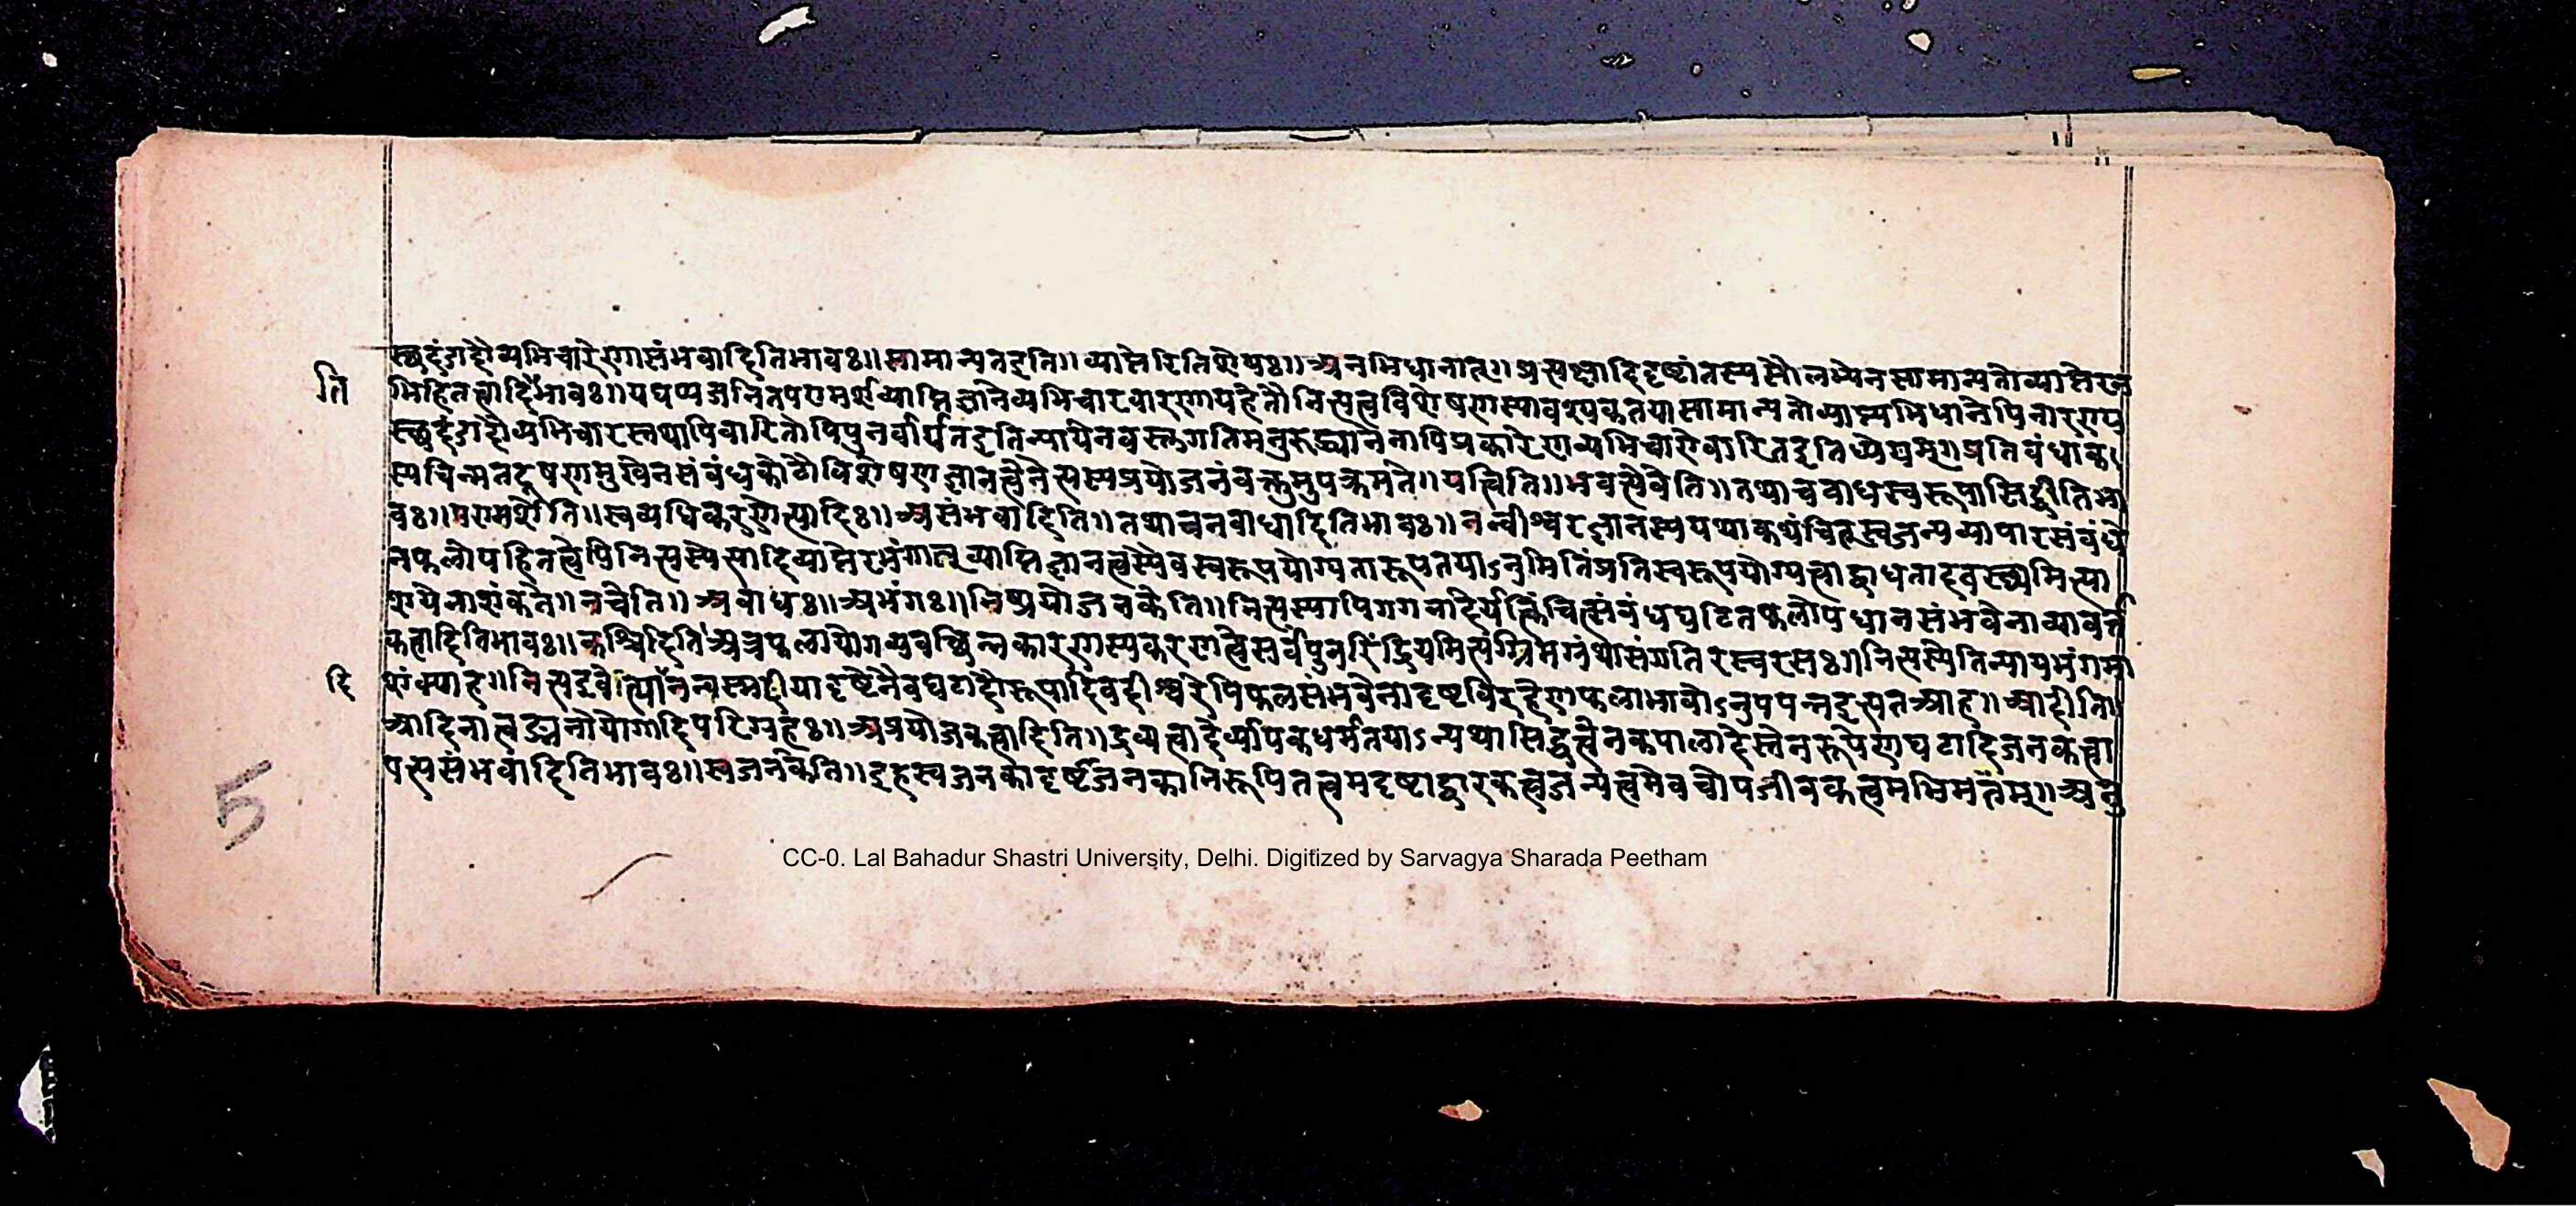 स्खदंगहौव्यभिचारेणासंभवादितिभावः॥सामान्यतइति॥व्याप्तेरितिशेषः॥अनभिधानात्॥प्रत्यक्षादिदृष्टांतस्यसौलभ्येनसामान्यतोव्याप्तेरन
ति
भिहितत्वादिभावः॥यद्यप्यजनितपरामर्शव्याप्तिज्ञानेव्यभिचारवारणायहेतौनित्यत्वविशेषणस्यावश्यकतयासामान्यतोव्याप्त्यभिधानेपिनारणप
व्यभिचारस्तथापिवारितोपिपुनर्वार्यतइतिन्यायेनवस्तुगतिमनुरुद्ध्यानेनापिप्रकारेणव्यभिचारोवारितइतिध्येयम्॥प्रतिबंधाक
स्यचिन्मतदूषणमुखेनसंबंधकोटौविशेषणज्ञानत्वेनेत्यस्यप्रयोजनंवक्तुमुपक्रमते॥यत्त्विति॥भवत्येवेति॥तथाचबाधस्वरूपासिद्धीतिभा
वः॥परामर्शेति॥स्वव्यधिकरणेत्यादिः॥असंभवादिति॥तथाचनबाधादितिभावः॥नन्वीश्वरज्ञानस्ययथाकथंचित्स्वजन्यव्यापारसंबंधे
नफलोपहितत्वेपिनित्यस्येत्यादिव्याप्तेरभंगात्व्याप्तिज्ञानत्वस्यैवस्वरूपयोग्यतारूपतयाऽनुमितिंप्रतिस्वरूपयोग्यत्वाद्बाधतादवस्थ्यमित्या
शयेनाशंकते॥नचेति॥अबाधः॥अभंगः॥निष्प्रयोजनकेति॥नित्यस्यापिगगनादेर्यत्किंचित्संबंधघटितफलोपधानसंभवेनाव्यावर्त
कत्वादितिभावः॥कश्चिदितिअत्रफलायोगव्यवच्छिन्नकारणस्यकरणत्वेसर्वंपुनरिंद्रियमित्यग्रिमग्रंथासंगतिरस्वरसः॥नित्यस्येतिन्यायभंगमा
दि
शंक्याह॥नित्यइवेत्यानन्यस्मदीयादृष्टेनैवघटादौरूपादिवदीश्वरेपिफलसंभवेनादृष्टविरहेणफलाभावोऽनुपपन्नइत्यतआह॥आदीति॥
आदिनात्वङ्मनोयोगादिपरिग्रहः॥अप्रयोजकत्वादिति॥द्रव्यत्वादेर्व्यापकधर्मतयाऽन्यथासिद्धत्वेनकपालादेस्तेनरूपेणघटादिजनकत्वा
पत्त्यसंभवादितिभावः॥स्वजनकेति॥इहस्वजनकादृष्टजनकानिरूपितत्वमदृष्टाद्वारकत्वजन्यत्वमेवचोपजीवकत्वमभिमतम्॥अनु
5
CC-0. Lal Bahadur Shastri University, Delhi. Digitized by Sarvagya Sharada Peetham